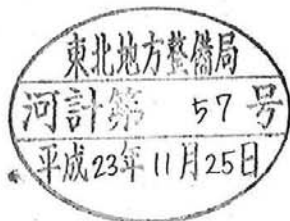 東北地方整備局
河計第 57 号
平成23年11月25日